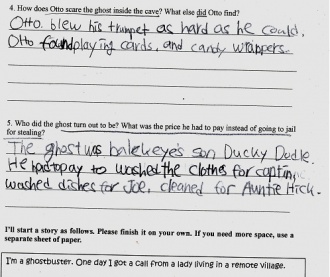 4. How does Otto scare the ghost inside the cave? What else did Otto find?
Otto blew his trumpet as hard as he could.
Otto found playing cards, and candy wrappers.
5. Who did the ghost turn out to be? What was the price he had to pay instead of going to jail
for stealing?
The ghost was balckeye's son Ducky Dodle.
He had to pay to washed the clothes for captin,
washed dishes for Joe, cleaned for Auntie Hick.
I'll start a story as follows. Please finish it on your own. If you need more space, use a
separate sheet of paper.
I'm a ghostbuster. One day I got a call from a lady living in a remote village.